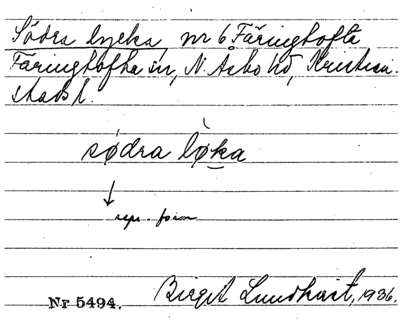 Södra lycka, nr 6 Färingtofta
Färingtofta sn, N. Åsbo hd, Kristian-
stads l.
sødra løka
repr. form
Nr 5494. Birgit Lundkvist, 1936.